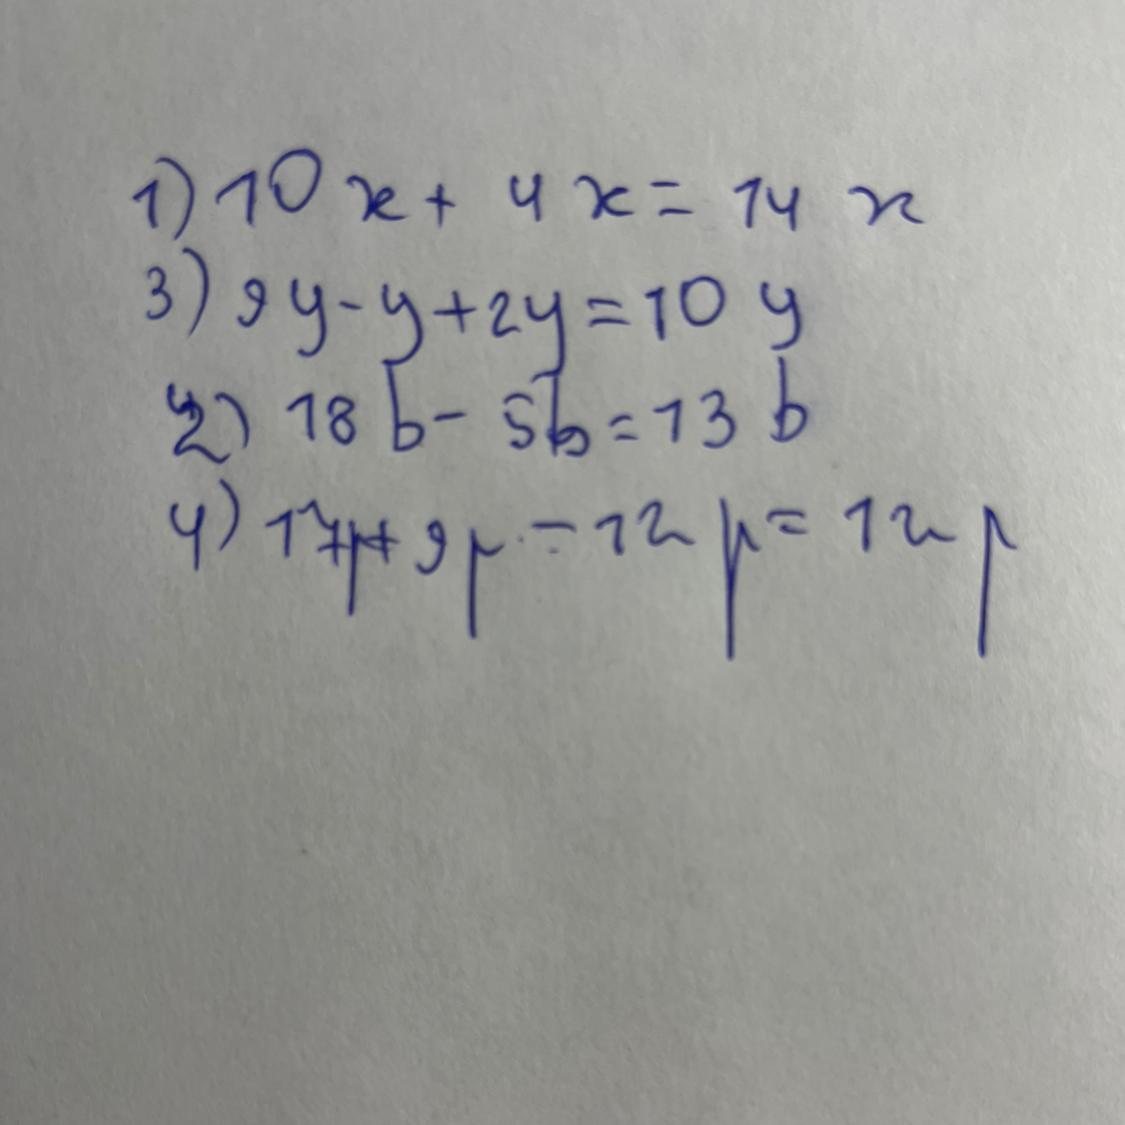 1) 10x + 4x = 14x
3) 9y - y + 2y = 10y
2) 18b - 5b = 13b
4) 17p + 9p - 12p = 12p